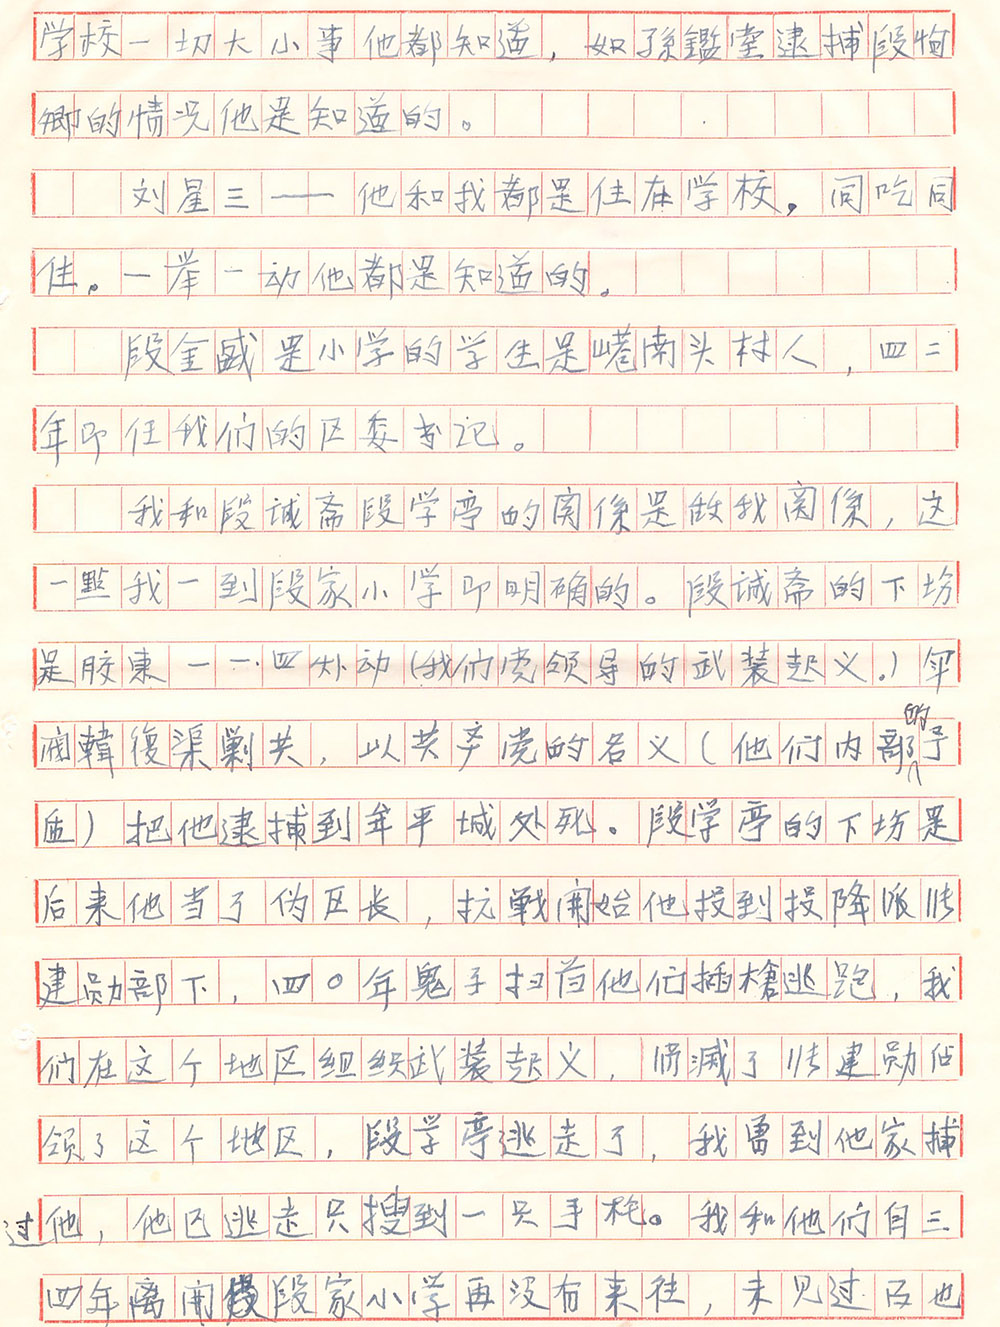 学校一切大小事他都知道，如孫鑑堂逮捕段怕
卿的情况他是知道的。
刘星三——他和我都是住在学校，同吃同
住。一举一动他都是知道的。
段金戚是小学的学生是嵖南头村人，四二
年即任我们的区委书记。
我和段诚斋段学亭的関係是敌我関係，这
一點我一到段家小学即明确的。段诚斋的下坊
是胶東一一·四外动(我们党领导的武装起义.)军
阀韓復渠剿共，以共产党的名义(他们内部的予
盾)把他逮捕到牟平城处死。段学亭的下坊是
后来他当了伪区长，抗戰開始他投到投降派张
建勋部下，四〇年鬼子扫荡他们插槍逃跑，我
们在这个地区组织武装起义，消滅了张建勋佔
领了这个地区，段学亭逃走了，我曾到他家捕
过他，他已逃走只搜到一只手枪。我和他们自三
四年离開段家小学再没有来往，未见过面也